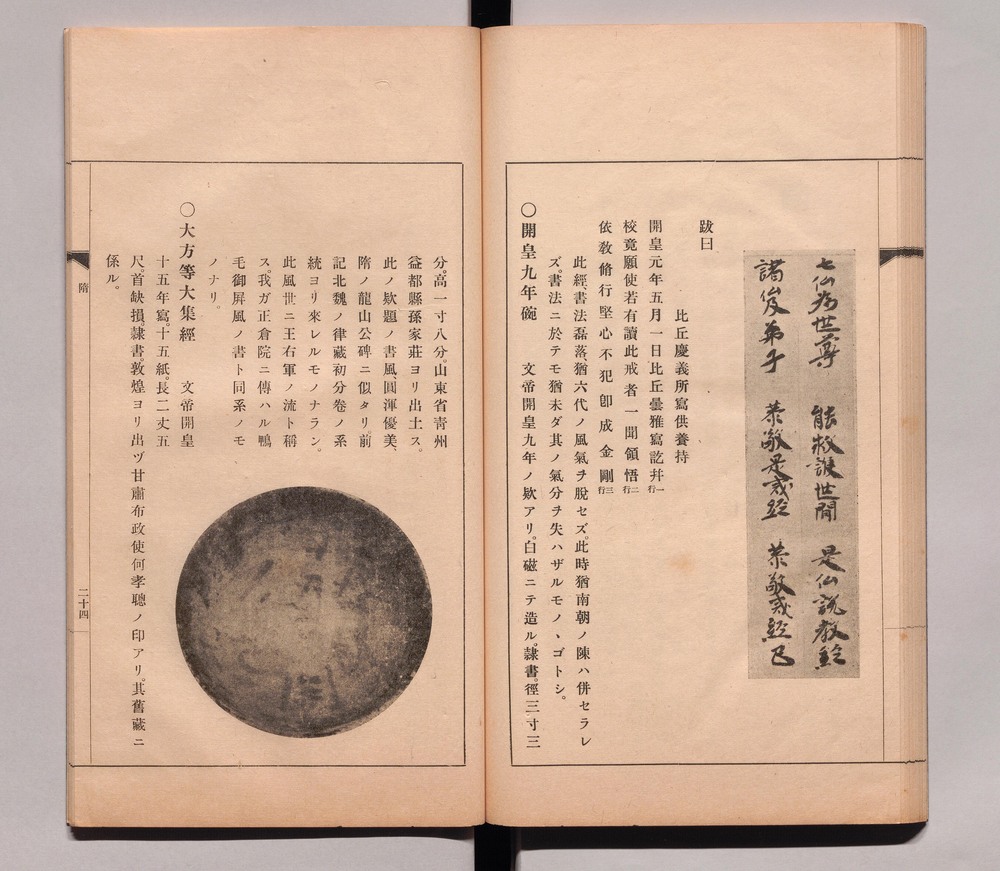 七仏為世尊　能救護世間　是仏説教経
諸及弟子　恭敬是戒経　恭敬戒經已
跋曰
比丘慶義所寫供養持
開皇元年五月一日比丘曇雅寫訖幷一行
校竟願使若有讀此戒者一聞領悟二行
依敎脩行堅心不犯卽成金剛三行
此經書法磊落、猶六代ノ風氣ヲ脫セズ。此時猶南朝ノ陳ハ併セラレ
ズ。書法ニ於テモ猶未ダ其ノ氣分ヲ失ハザルモノヽゴトシ。
〇開皇九年碗　文帝開皇九年ノ欵アリ。白磁ニテ造ル。隷書。徑三寸三
分。高一寸八分。山東省靑州
益都縣孫家莊ヨリ出土ス。
此ノ欵題ノ書風圓渾優美、
隋ノ龍山公碑ニ似タリ。前
記北魏ノ律藏初分卷ノ系
統ヨリ來レルモノナラン。
此風世ニ王右軍ノ流ト稱
ス。我ガ正倉院ニ傳ハル鴨
毛御屛風ノ書ト同系ノモ
ノナリ。
〇大方等大集經　文帝開皇
十五年寫。十五紙。長二丈五
尺。首缺損。隷書。敦煌ヨリ出ヅ甘肅布政使何孝聰ノ印アリ。其舊藏ニ
係ル。
隋
二十四